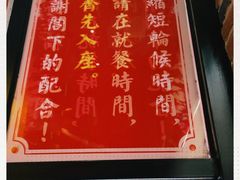 縮短輪候時間，
請在就餐時間，
齊先入座。
謝閣下的配合！